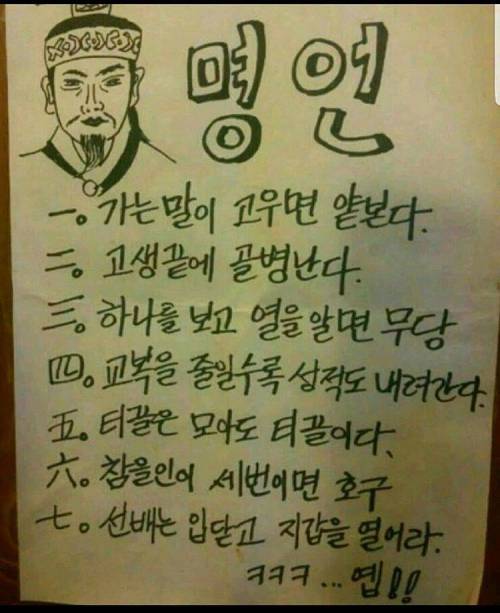 명언
一。가는말이 고우면 얕본다.
二。고생끝에 골병난다.
三。하나를 보고 열을 알면 무당
四。교복을 줄일수록 성적도 내려간다.
五。티끌은 모아도 티끌이다.
六。참을인이 세번이면 호구
七。선배는 입닫고 지갑을 열어라.
ㅋㅋㅋ... 옙!!